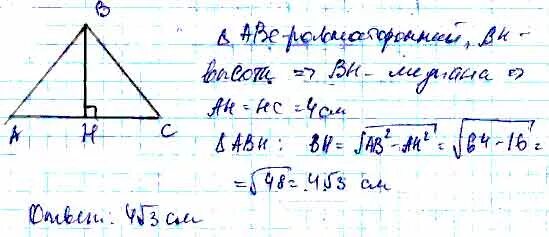 B
A H C
Δ ABC-равносторонний, BH-
высота => BH- медиана =>
AH=HC=4см
Δ ABH: BH=√AB²-AH²=√64-16=
=√48=4√3 см
Ответ: 4√3 см